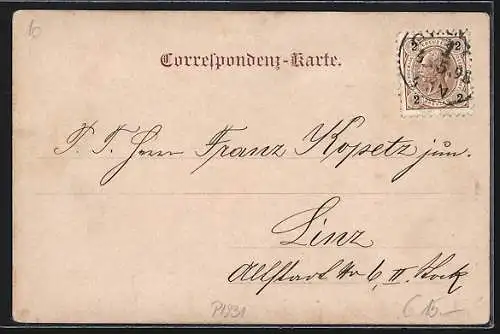 b
Correspondenz-Karte.
2 2
5. 98
2 2
P. T. Herrn Franz Kopetz jun.
Linz
Altstadt No 6, II. Stock
P1931 € 15.–